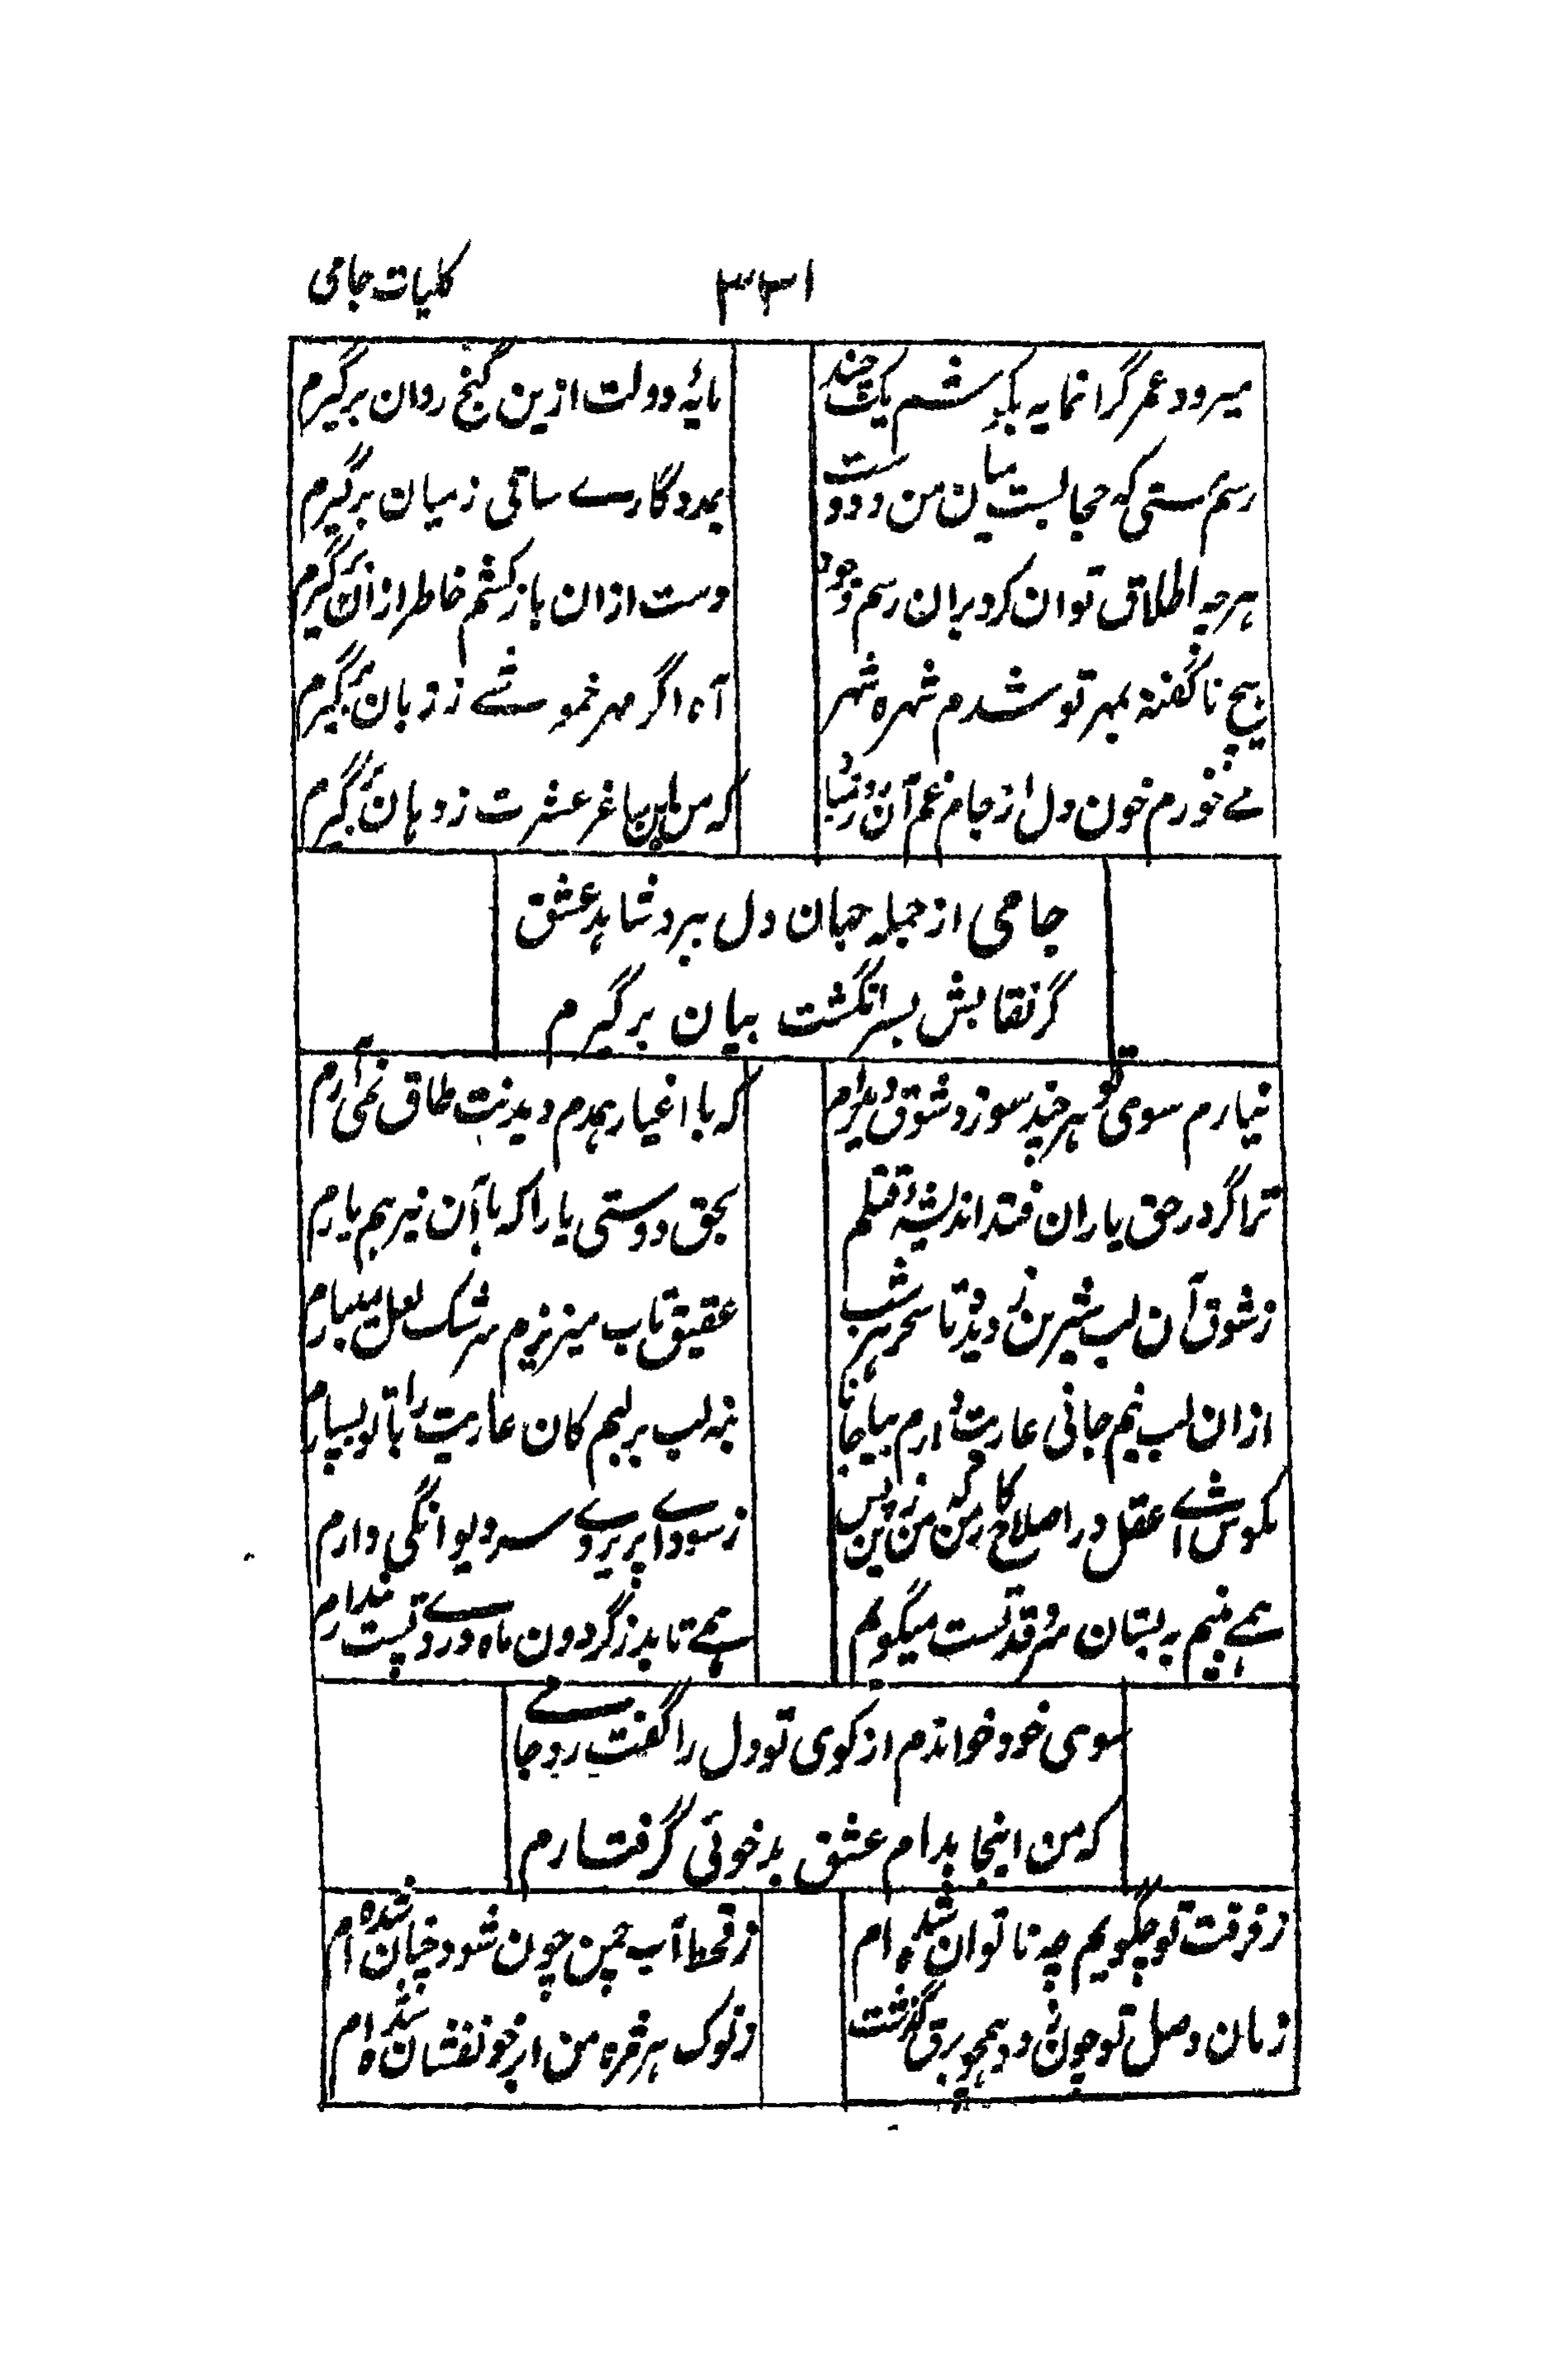 کلیات جامی
۳۳۱
میرود عمر گرانمایه بکوشم یکچند
مایهٔ دولت ازین گنج روان برگیرم
رسم هستی که حجابست میان من و دوست
بمددگارے ساقی زمیان برگیرم
هرچه اطلاق توان کرد بران رسم وجود
دست ازان بازکشم خاطر ازان برگیرم
هیچ ناگفته بمهر تو شدم شهره شهر
آه اگر مهر خموشے ز زبان برگیرم
مے خورم خون دل از جام غم آن روز مباد
که من این ساغر عشرت ز دهان برگیرم
جامی از جمله جهان دل ببرد شاهد عشق
گر نقابش بسر انگشت بیان برگیرم
نیارم سوی تو هرچند سوز و شوق دیدارم
که با اغیار همدم دیدنت طاق نمی آرم
ترا گر در حق یاران فتد اندیشهٔ قتلم
بحق دوستی یارا که با آن نیز هم یارم
ز شوق آن لب شیرین ز دیده تا سحر هر شب
عقیق ناب میریزم سرشک لعل میبارم
ازان لب نیم جانی عاریت دارم بیا جانا
بنه لب بر لبم کان عاریت را باتو بسپارم
مکوش اے عقل در اصلاح کار من که من زین پس
ز سوداے پریروے سر دیوانگی دارم
همے بینم به بستان سرو قد تست میگویم
همے تابد ز گردون ماه و روے تست پندارم
سوی خود خواندم از کوی تو دل را گفت رو جامے
که من اینجا بدام عشق بدخوئی گرفتارم
ز فرقت تو چگویم چه ناتوان شده ام
ز قحط آب چمن چون شود چنان شده ام
زمان وصل تو چون دود همچو برق گذشت
ز نوک هر مژه من ابر خونفشان شده ام